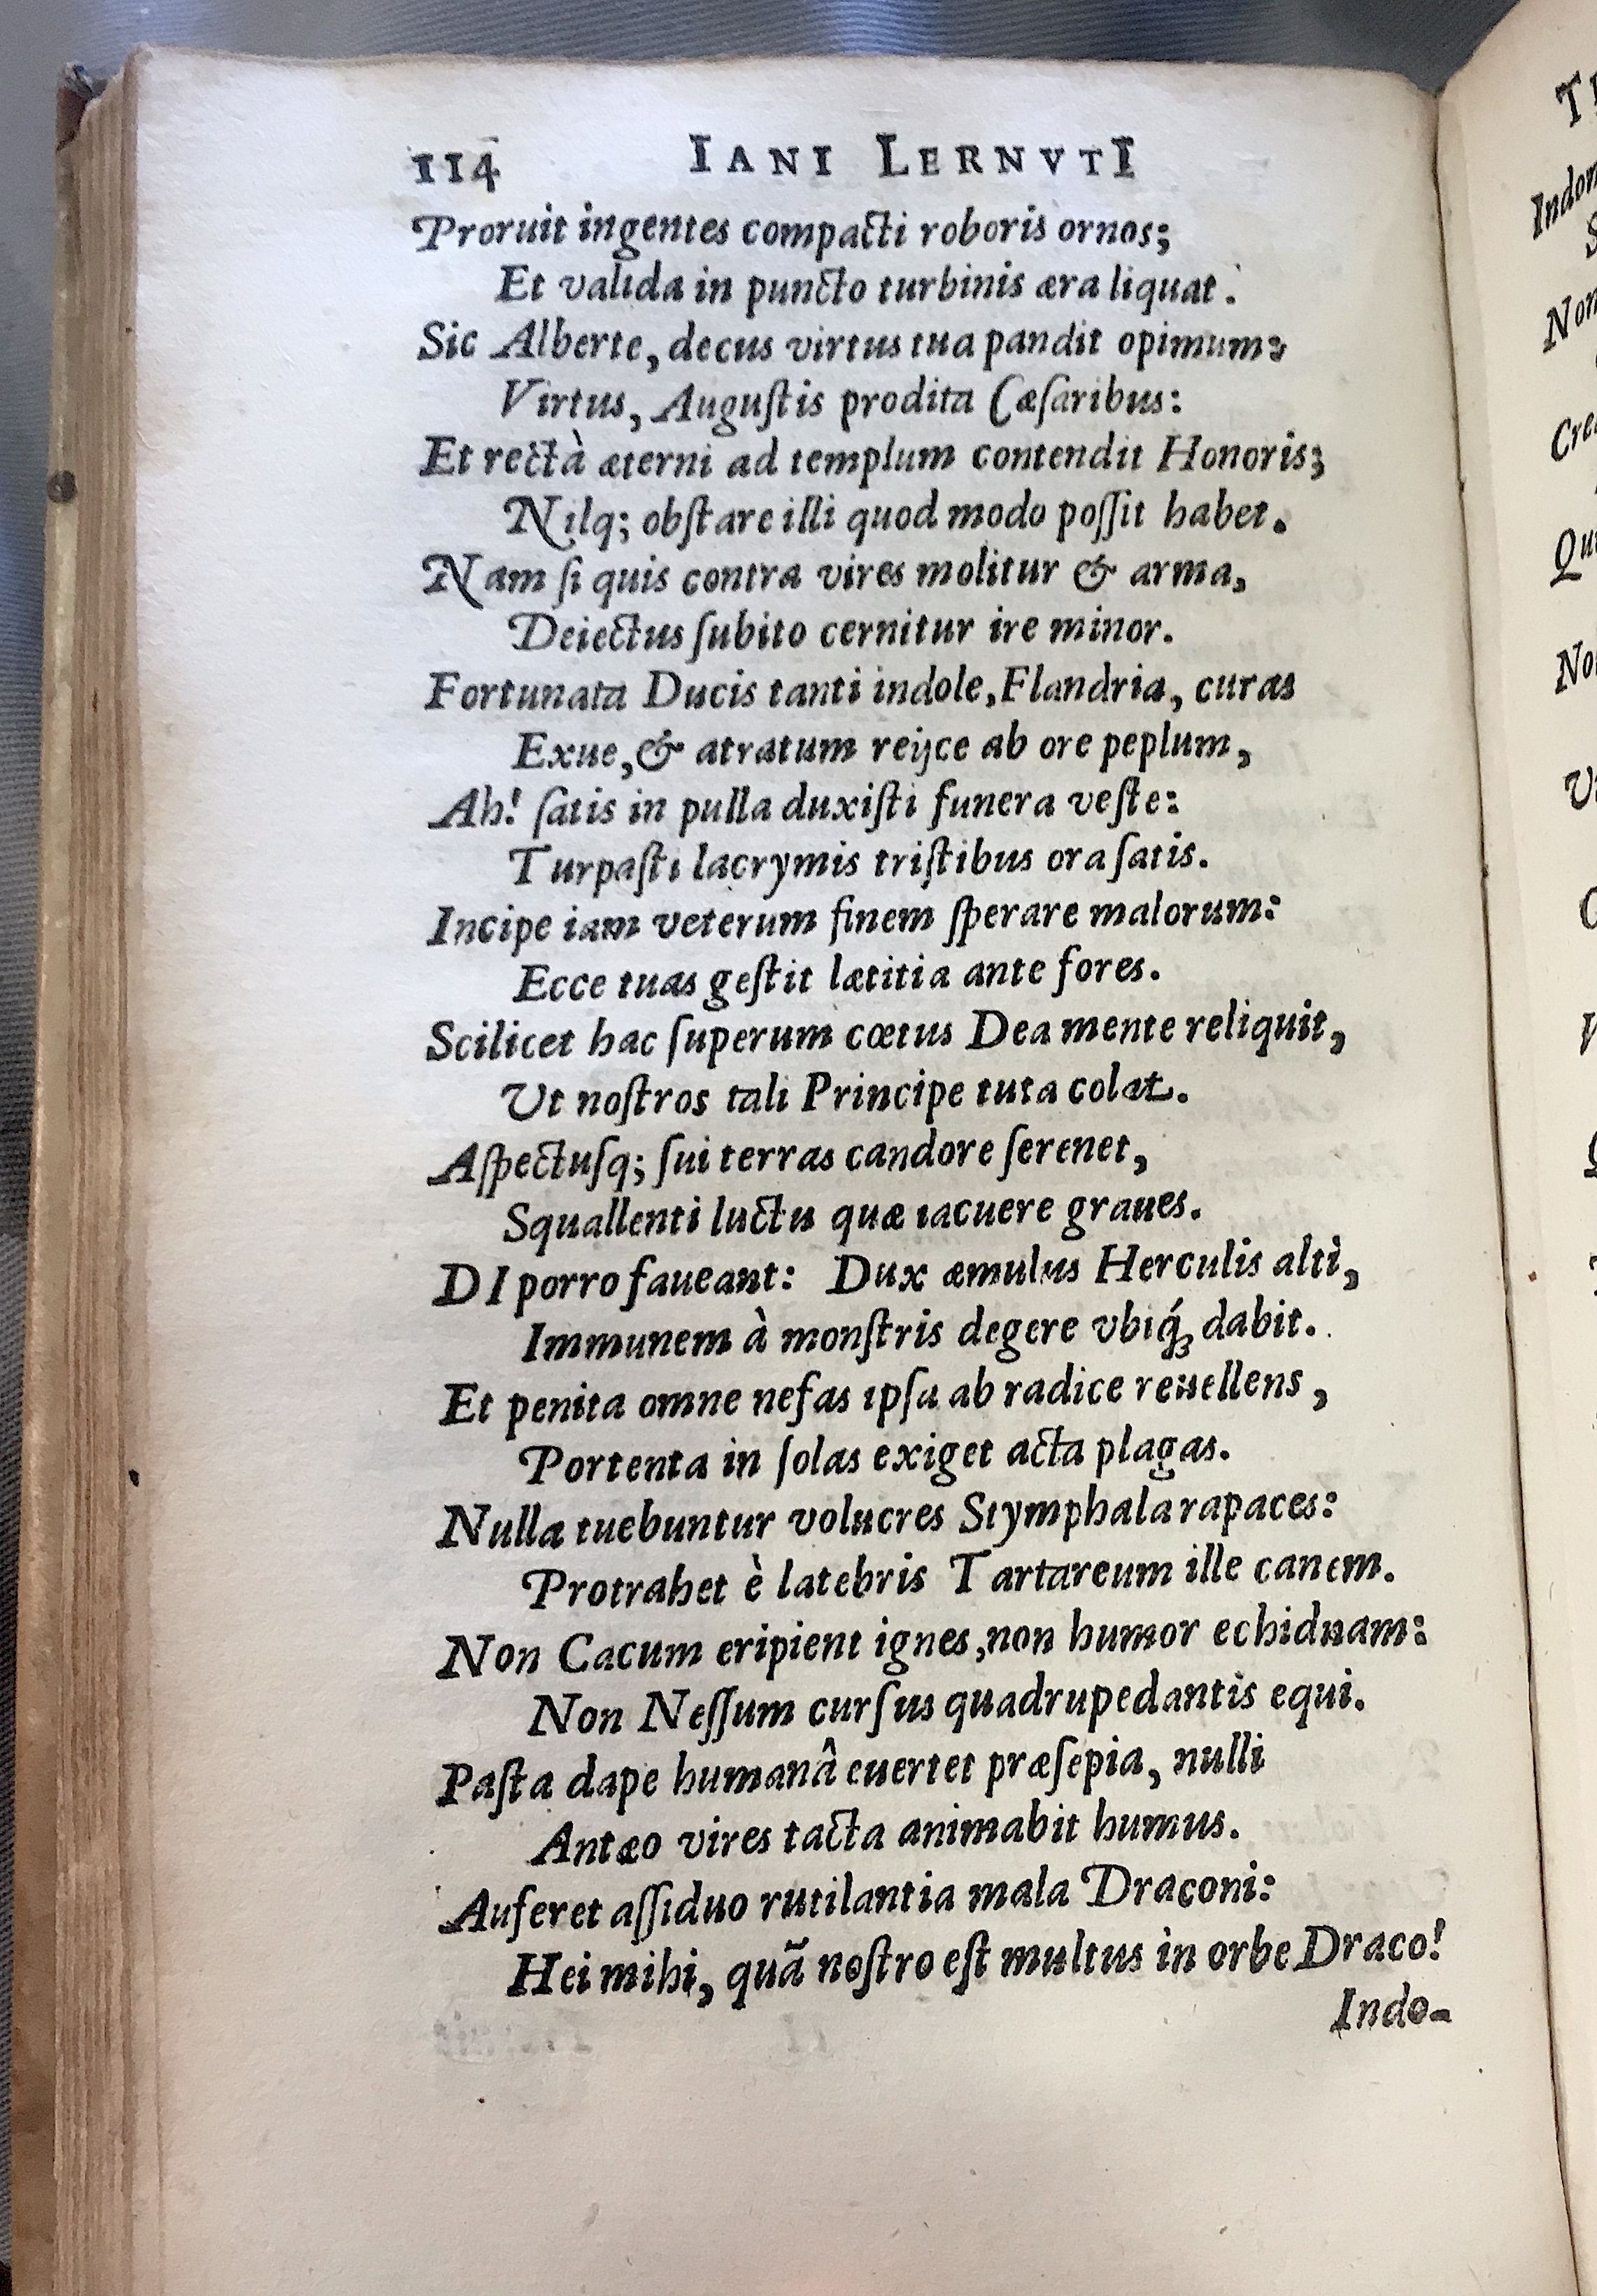 114 IANI LERNVTI
Proruit ingentes compacti roboris ornos;
Et valida in puncto turbinis æra liquat.
Sic Alberte, decus virtus tua pandit opimum:
Virtus, Auguſtis prodita Cæſaribus:
Et rectà æterni ad templum contendit Honoris;
Nilq; obſtare illi quod modo poſſit habet.
Nam ſi quis contra vires molitur & arma,
Deiectus ſubito cernitur ire minor.
Fortunata Ducis tanti indole, Flandria, curas
Exue, & atratum reijce ab ore peplum,
Ah! ſatis in pulla duxiſti funera veſte:
Turpaſti lacrymis triſtibus ora ſatis.
Incipe iam veterum finem ſperare malorum:
Ecce tuas geſtit lætitia ante fores.
Scilicet hac ſuperum cœtus Dea mente reliquit,
Ut noſtros tali Principe tuta colat.
Aſpectuſq; ſui terras candore ſerenet,
Squallenti luctu quæ iacuere graues.
DI porro faueant: Dux æmulus Herculis alti,
Immunem à monſtris degere vbiq́ꝫ dabit.
Et penita omne nefas ipſa ab radice reuellens,
Portenta in ſolas exiget acta plagas.
Nulla tuebuntur volucres Stymphala rapaces:
Protrahet è latebris Tartareum ille canem.
Non Cacum eripient ignes, non humor echidnam:
Non Neſſum curſus quadrupedantis equi.
Paſta dape humanâ euertet præſepia, nulli
Antæo vires tacta animabit humus.
Auferet aſſiduo rutilantia mala Draconi:
Hei mihi, quā noſtro eſt multus in orbe Draco!
Indo-